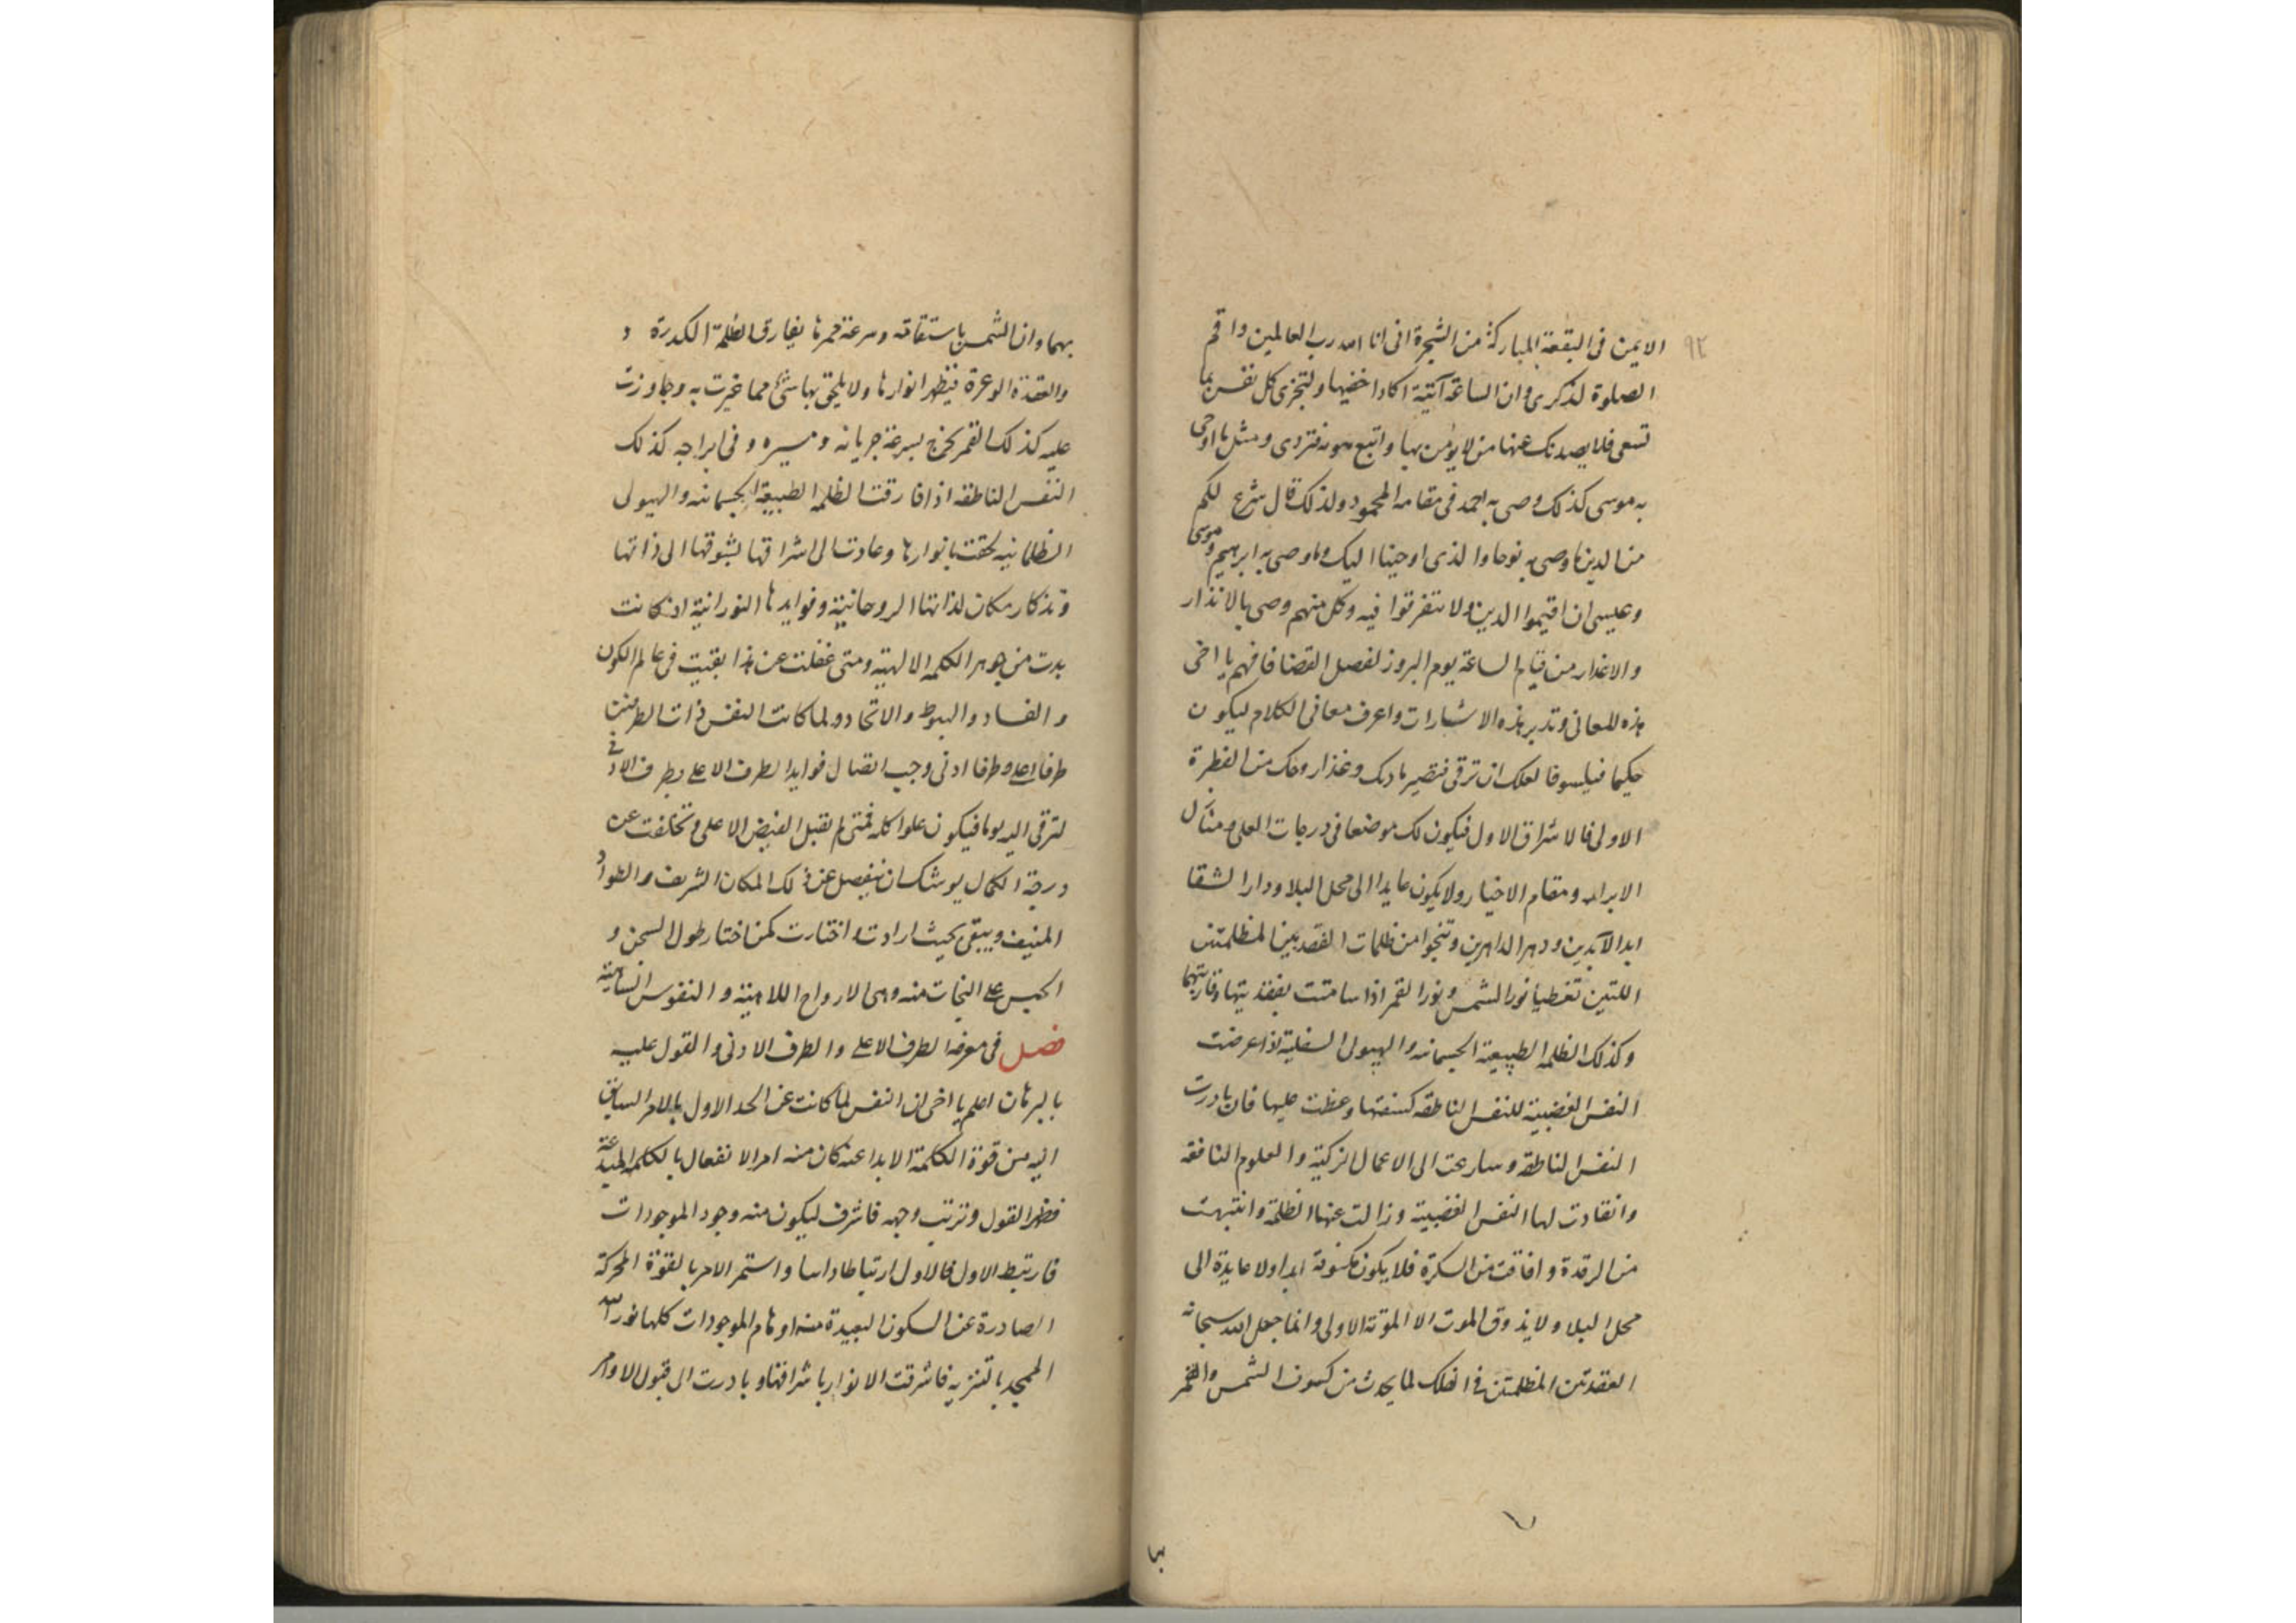 ٩٢
الايمن فى البقعة المباركة من الشجرة انى انا الله رب العالمين واقم
الصلوة لذكرى وان الساعة آتية اكاد اخفيها ولتجزى كل نفس بما
تسعى فلا يصدنك عنها من لا يؤمن بها واتبع هويه فتردى ومثل ما اوحى
به موسى كذلك وصى به احمد فى مقامه المحمود ولذلك قال شرع لكم
من الدين ما وصى به نوحا والذى اوحينا اليك وما وصى به ابرهيم وموسى
وعيسى ان اقيموا الدين ولا تتفرقوا فيه وكل منهم وصى بالانذار
والاعذار من قيام الساعة يوم البروز لفصل القضا فافهم يا اخى
هذه المعانى وتدبر هذه الاشارات واعرف معانى الكلام ليكون
حكيما فيلسوفا لعلك ان ترقى فتصير مادتك وغذا روحك من الفطرة
الاولى فالاشراق الاول فيكون لك موضعا فى درجات العلى ومنازل
الابرار ومقام الاخيار ولا يكون عايدا الى محل البلا ودار الشقا
ابد الآبدين ودهر الداهرين وتنجوا من ظلمات العقدتين المظلمتين
اللتين تغطيا نور الشمس ونور القمر اذا سامتت بعقدتيها وقاربتهما
وكذلك الظلمه الطبيعية الجسمانيه والهيولى السفلية اذا عرضت
النفس الغضبية للنفس الناطقه كسفتها وغطت عليها فان بادرت
النفس الناطقه وسارعت الى الاعمال الزكية والعلوم النافعه
وانقادت لها النفس الغضبية وزالت عنها الظلمة وانتبهت
من الرقدة وافاقت من السكرة فلا يكون مكسوفة ابدا ولا عايدة الى
محل البلا ولا يذوق الموت الا الموتة الاولى وانما جعل الله سبحانه
العقدتين المظلمتين فى الفلك لما يحدث من كسوف الشمس والقمر
بهما
بهما وان الشمس باستقامته وسرعة ممرها يفارق الظلمة الكدرة و
والعقدة الوعرة فيظهر انوارها ولا يلحق بها شئ مما غيرت به وجاوزت
عليه كذلك القمر يخرج بسرعة جريانه ومسيره وفى ابراجه كذلك
النفس الناطقه اذا فارقت الظلمه الطبيعية الجسمانيه والهيولى
الظلمانيه لحقت بانوارها وعادت الى اشراقها بشوقها الى ذاتها
وتذكار مكان لذاتها الروحانية وفوايدها النورانية اذ كانت
بدت من جوهر الكلمه الالهية ومتى غفلت عن هذا بقيت فى عالم الكون
والفساد والهبوط والاتحاد ولما كانت النفس ذات الطرفين
طرفا اعلى وطرفا ادنى وجب اتصال فوايد الطرف الاعلى بطرف الادنى
لترقى اليه يوما فيكون علوا كله فمتى لم تقبل الفيض الاعلى وتخلفت عن
درجة الكمال يوشك ان ينفصل عن ذلك المكان الشريف والطود
المنيف ويبقى بحيث ارادت واختارت كمن اختار طول السجن و
الحبس على النجات منه وهى الارواح اللاهية والنفوس الساهية
فصل فى معرفة الطرف الاعلى والطرف الادنى والقول عليه
بالبرهان اعلم يا اخى ان النفس لما كانت عن الحد الاول بالامر السابق
اليه من قوة الكلمة الابداعية كان منه امر الانفعال بالكلمه المبدعة
فظهر القول وترتب وجهه فاشرف ليكون منه وجود الموجودات
فارتبط الاول فالاول ارتباطا داسا واستمر الامر بالقوة المحركة
الصادرة عن السكون البعيدة منه اوهام الموجودات كلها نور الله
الممجد بالتنزيه فاشرقت الانوار باشراقها وبادرت الى قبول الاوامر